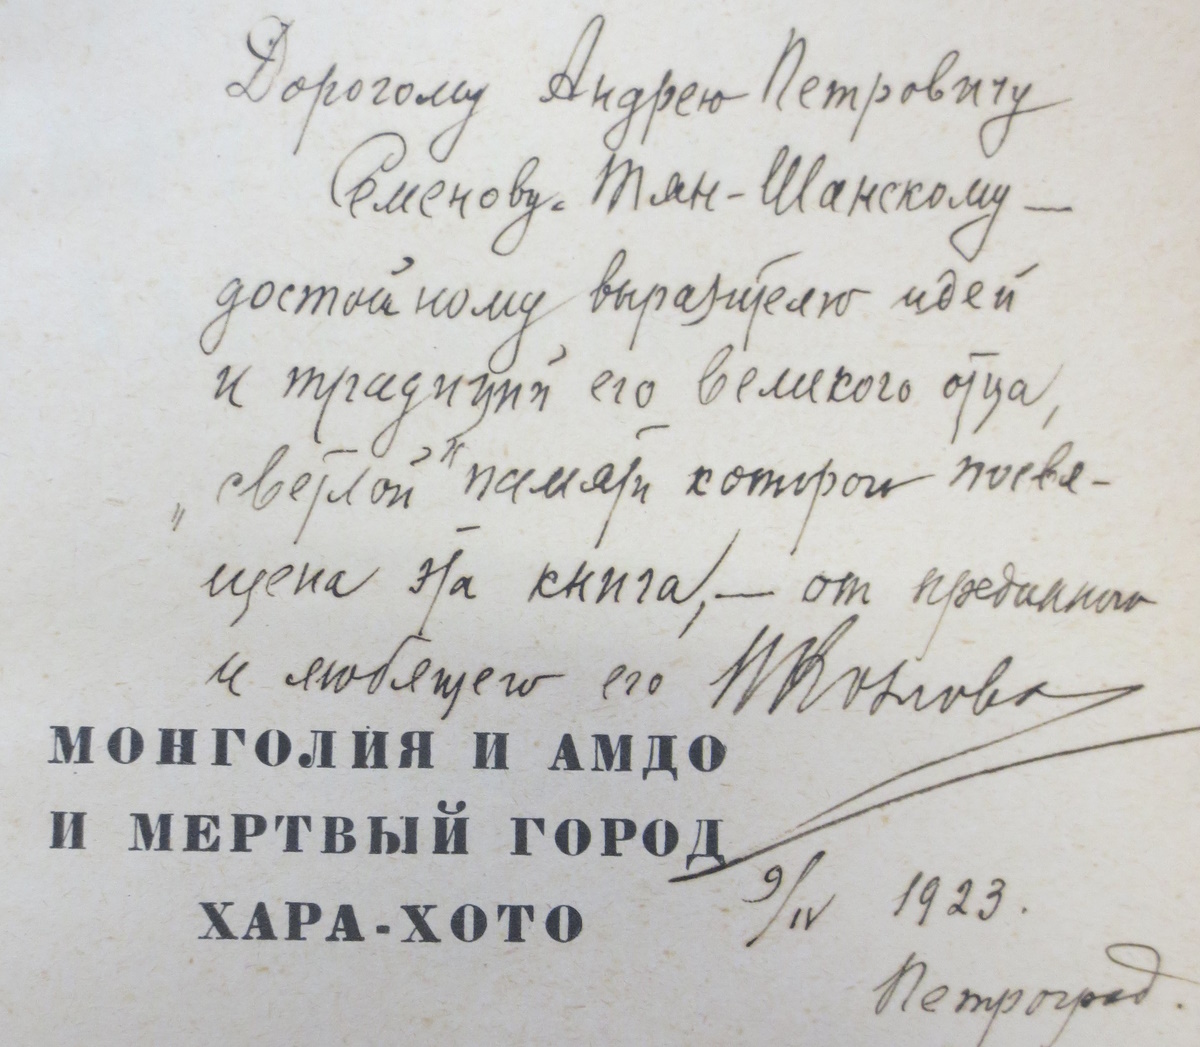 Дорогому Андрею Петровичу
Семенову-Тян-Шанскому —
достойному выразителю идей
и традиций его великого отца,
„светлой" памяти которой посвя-
щена эта книга, — от преданного
и любящего его ПКозлова
МОНГОЛИЯ И АМДО
И МЕРТВЫЙ ГОРОД
ХАРА-ХОТО
9/IV 1923.
Петроград.